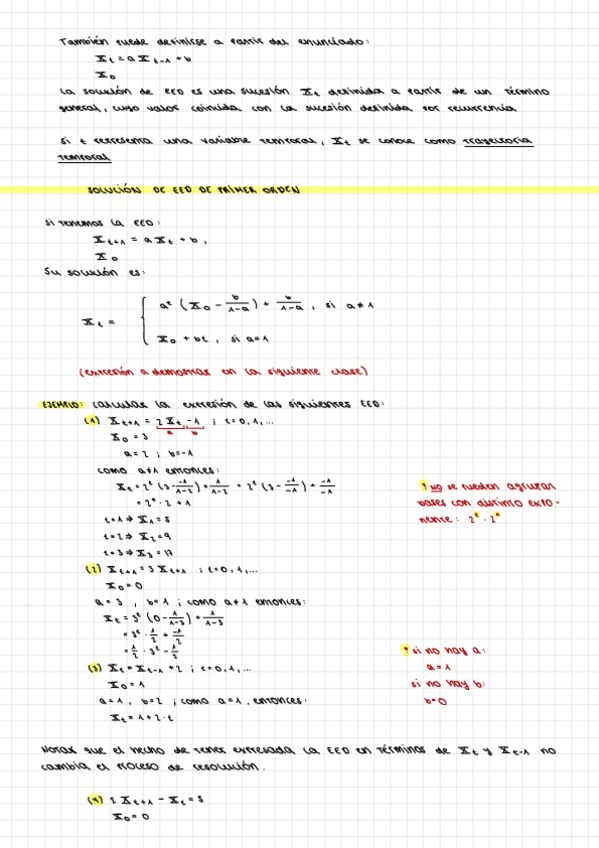 También puede definirse a partir del enunciado:
X_t = a X_{t-1} + b
X_0
La solución de EED es una sucesión X_t definida a partir de un término
general, cuyo valor coincida con la sucesión definida por recurrencia
Si t representa una variable temporal, X_t se conoce como trayectoria
temporal
SOLUCIÓN DE EED DE PRIMER ORDEN
Si tenemos la EED:
X_{t+1} = a X_t + b,
X_0
Su solución es:
X_t = { a^t (X_0 - b/(1-a)) + b/(1-a), si a ≠ 1
X_0 + bt, si a=1
(expresión a demostrar en la siguiente clase)
EJEMPLO: Calcular la expresión de las siguientes EED:
(1) X_{t+1} = 2X_t -1 ; t=0,1,...
a b
X_0 = 3
a=2 ; b=-1
Como a≠1 entonces:
X_t = 2^t (3 - -1/(1-2)) + -1/(1-2) = 2^t (3 - -1/-1) + -1/-1
= 2^t · 2 + 1
t=1 ⇒ X_1 = 5
t=2 ⇒ X_2 = 9
t=3 ⇒ X_3 = 17
* NO se pueden agrupar
bases con distinto expo-
nente: 2^t · 2^1
(2) X_{t+1} = 3X_{t+1} ; t=0,1,...
X_0 = 0
a=3 , b=1 ; como a≠1 entonces:
X_t = 3^t (0 - 1/(1-3)) + 1/(1-3)
= 3^t · 1/2 + -1/2
= 1/2 · 3^t - 1/2
(3) X_t = X_{t-1} + 2 ; t=0,1,...
X_0 = 1
a=1 , b=2 ; como a=1, entonces:
X_t = 1 + 2·t
* si no hay a:
a=1
si no hay b:
b=0
Notar que el hecho de tener expresada la EED en términos de X_t y X_{t-1} no
cambia el proceso de resolución.
(4) 2X_{t+1} - X_t = 5
X_0 = 0